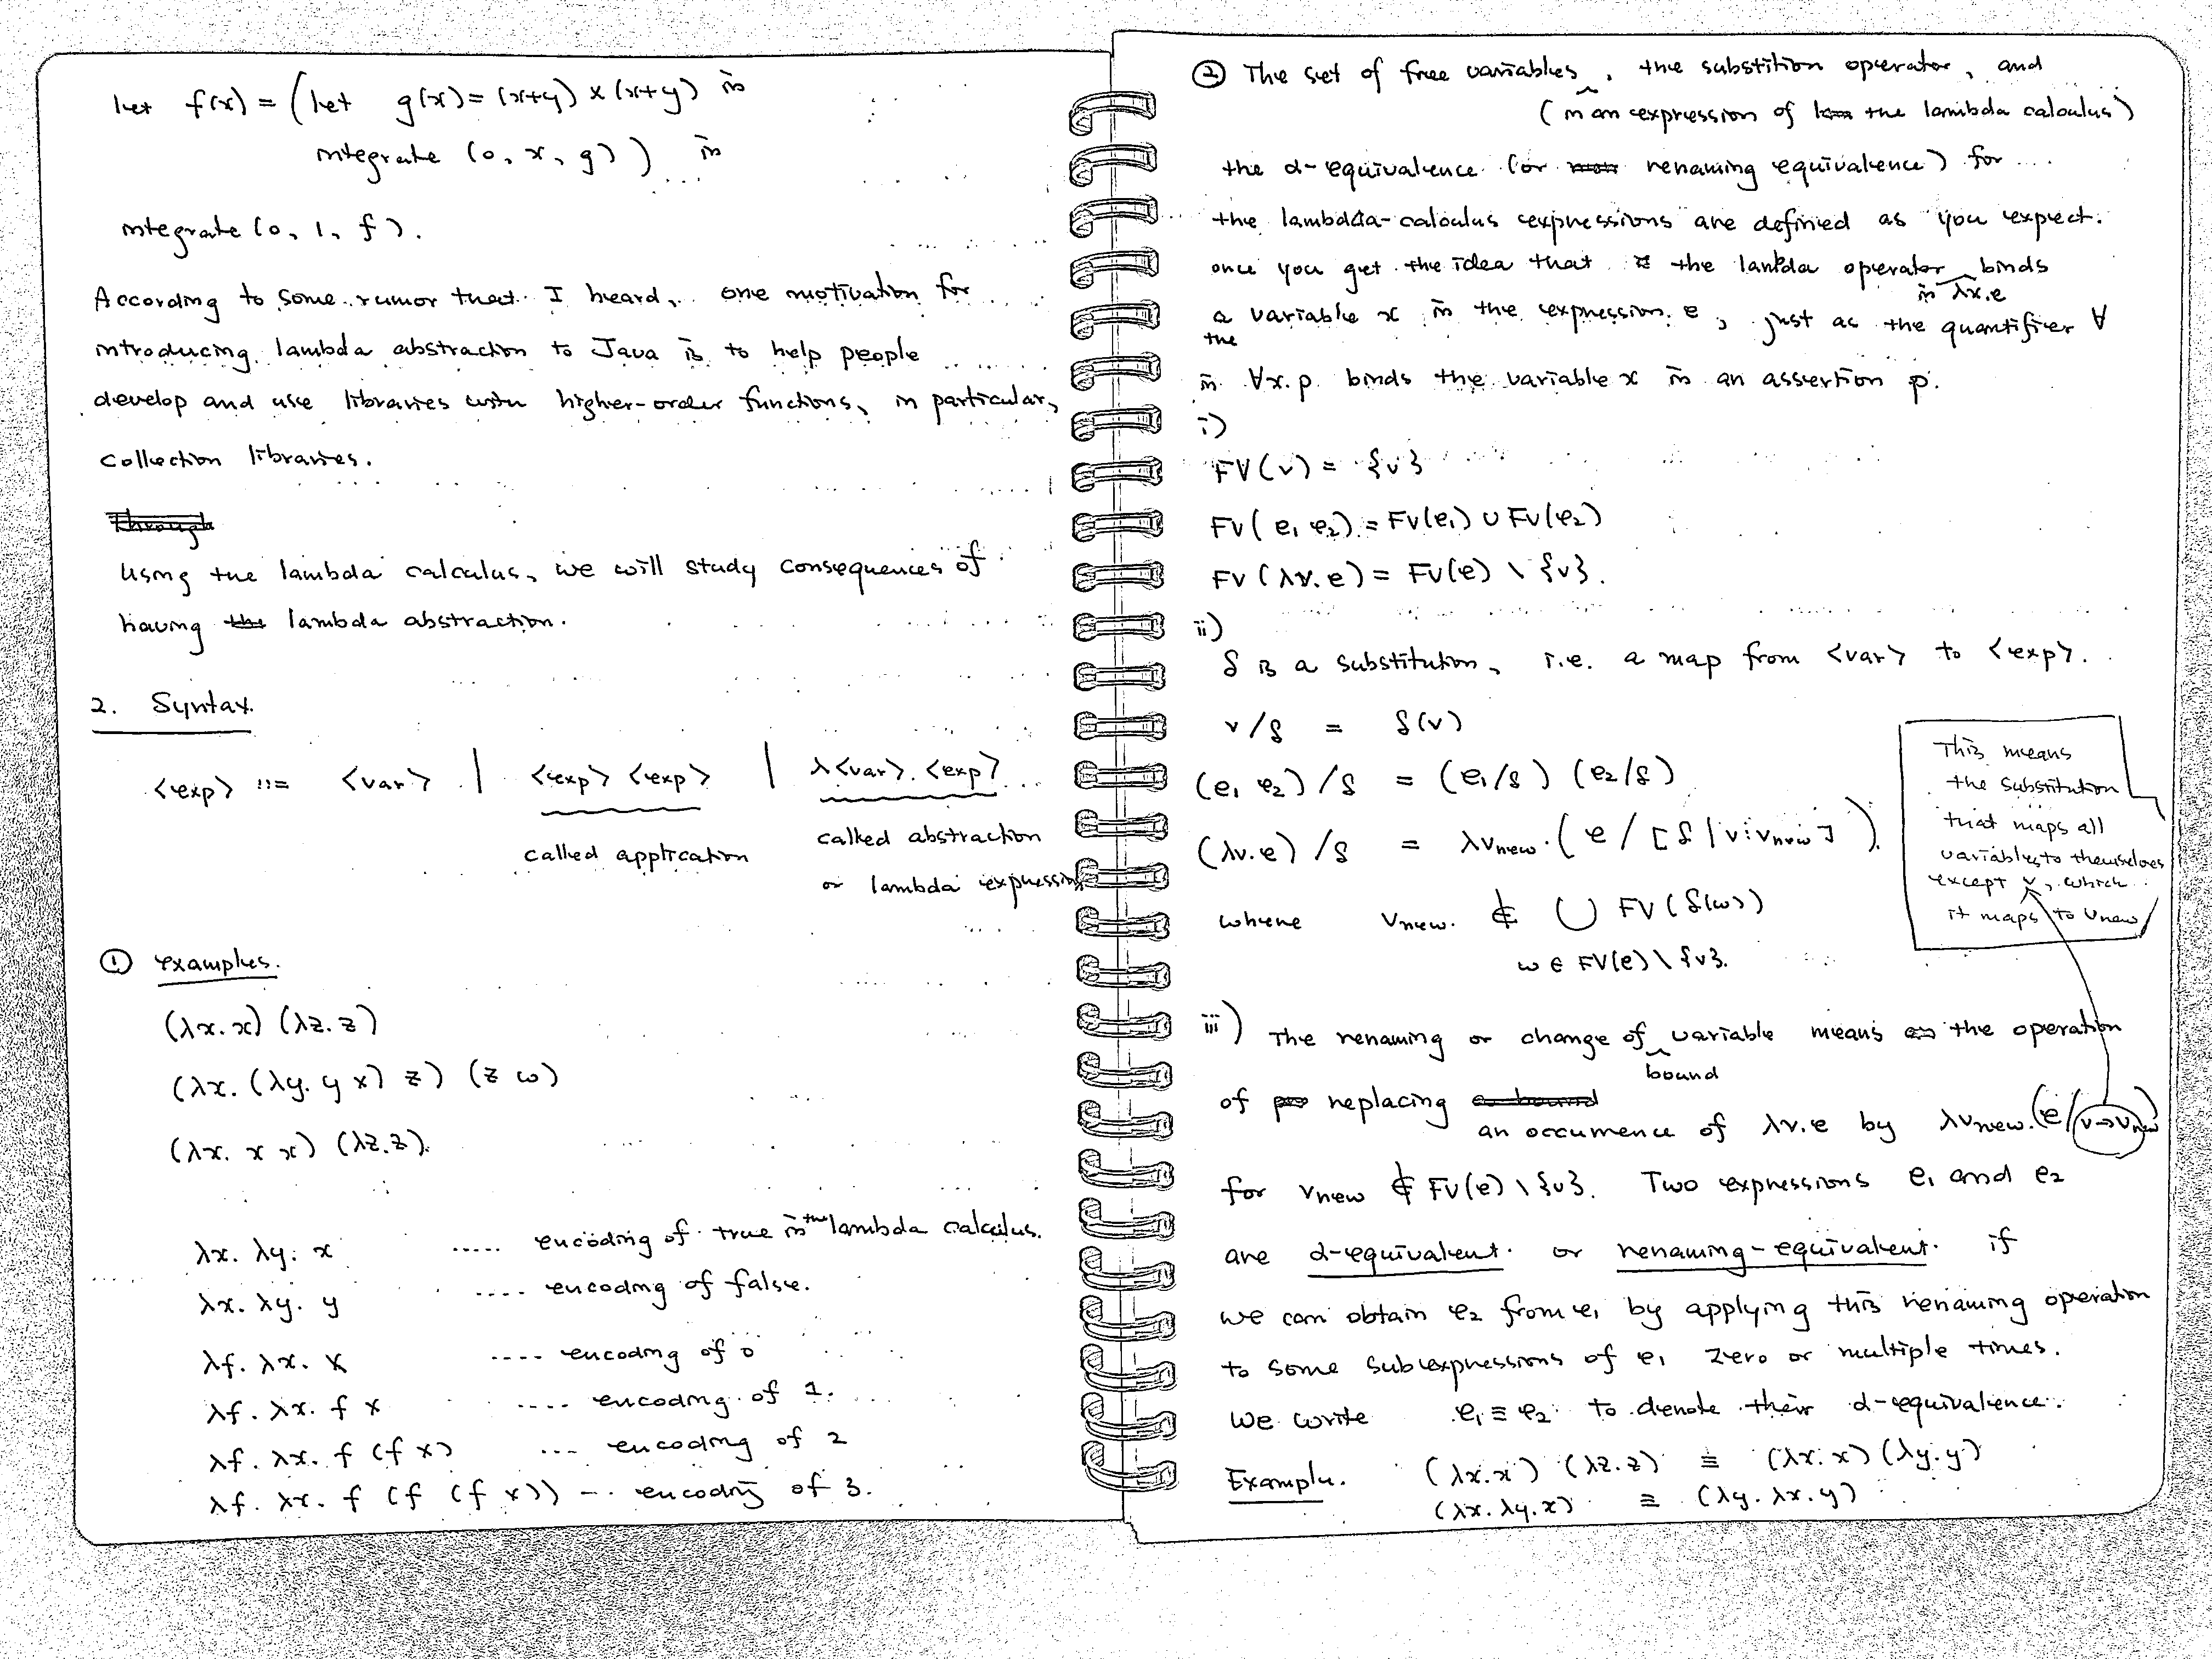 let f(x) = (let g(x) = (x+y) × (x+y) in
integrate (0, x, g)) in
integrate (0, 1, f).
According to some rumor that I heard, one motivation for
introducing lambda abstraction to Java is to help people
develop and use libraries with higher-order functions, in particular,
collection libraries.
Through
Using the lambda calculus, we will study consequences of
having the lambda abstraction.
2. Syntax.
<exp> ::= <var> | <exp> <exp> | λ<var>. <exp>
called application
called abstraction
or lambda expression
① examples.
(λx.x) (λz.z)
(λx. (λy. y x) z) (z w)
(λx. x x) (λz.z).
λx. λy. x ..... encoding of true in the lambda calculus.
λx. λy. y .... encoding of false.
λf. λx. x .... encoding of 0
λf. λx. f x .... encoding of 1.
λf. λx. f (f x) ... encoding of 2
λf. λx. f (f (f x)) ... encoding of 3.
② The set of free variables, the substition operator, and
(in an expression of the lambda calculus)
the α-equivalence (or renaming equivalence) for
the lambda-calculus expressions are defined as you expect.
once you get the idea that the lambda operator binds
in λx.e
a variable x in the expression e, just as the quantifier ∀
the
in ∀x.p binds the variable x in an assertion p.
i)
FV(v) = {v}
FV(e₁ e₂) = FV(e₁) ∪ FV(e₂)
FV(λv.e) = FV(e) \ {v}.
ii)
δ is a substitution, i.e. a map from <var> to <exp>.
v/δ = δ(v)
(e₁ e₂)/δ = (e₁/δ) (e₂/δ)
(λv.e)/δ = λvnew.(e/[δ|v:vnew]).
where vnew ∉ ∪ FV(δ(w))
w ∈ FV(e)\{v}.
This means
the substitution
that maps all
variables to themselves
except v, which
it maps to vnew
iii) The renaming or change of variable means the operation
bound
of replacing a bound
an occurrence of λv.e by λvnew.(e/v→vnew)
for vnew ∉ FV(e)\{v}. Two expressions e₁ and e₂
are α-equivalent or renaming-equivalent if
we can obtain e₂ from e₁ by applying this renaming operation
to some subexpressions of e₁ zero or multiple times.
We write e₁ ≡ e₂ to denote their α-equivalence.
Example. (λx.x) (λz.z) ≡ (λx.x) (λy.y)
(λx.λy.x) ≡ (λy.λx.y)